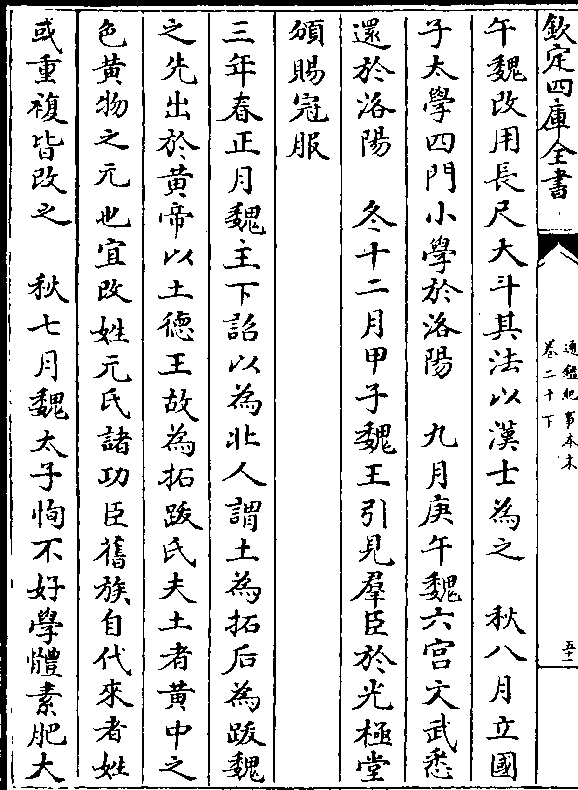 欽定四庫全書
通鑑紀事本末
卷二十下
五十二
午魏改用長尺大斗其法以漢士為之　秋八月立國
子太學四門小學於洛陽　九月庚午魏六宫文武悉
還於洛陽　冬十二月甲子魏王引見羣臣於光極堂
頒賜冠服
三年春正月魏主下詔以為北人謂土為拓后為跋魏
之先出於黄帝以土德王故為拓跋氏夫土者黄中之
色黄物之元也宜改姓元氏諸功臣舊族自代來者姓
或重複皆改之　秋七月魏太子恂不好學體素肥大